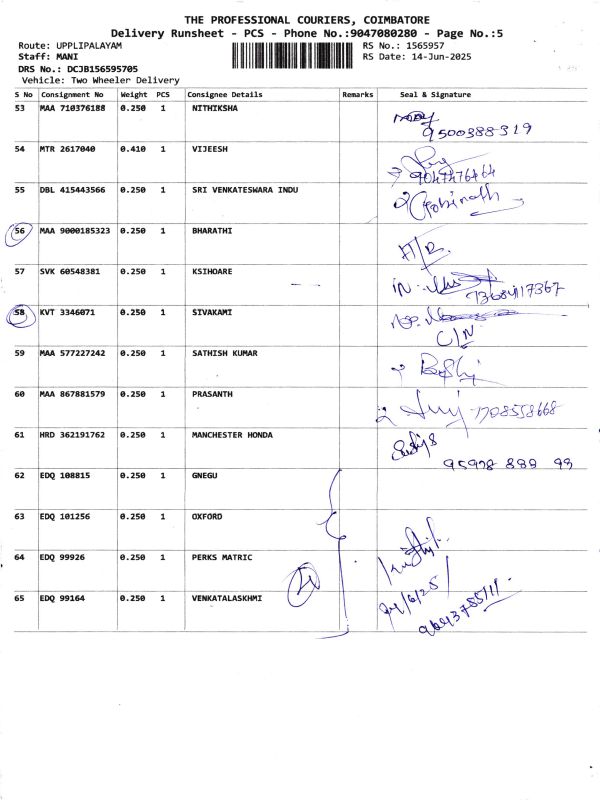 THE PROFESSIONAL COURIERS, COIMBATORE
Delivery Runsheet - PCS - Phone No.:9047080280 - Page No.:5
Route: UPPLIPALAYAM RS No.: 1565957
Staff: MANI RS Date: 14-Jun-2025
DRS No.: DCJB156595705
Vehicle: Two Wheeler Delivery
S No Consignment No Weight PCS Consignee Details Remarks Seal & Signature
53 MAA 710376188 0.250 1 NITHIKSHA
9500388319
54 MTR 2617040 0.410 1 VIJEESH
9047476464
55 DBL 415443566 0.250 1 SRI VENKATESWARA INDU Gobinath
56 MAA 9000185323 0.250 1 BHARATHI
57 SVK 60548381 0.250 1 KSIHOARE
58 KVT 3346071 0.250 1 SIVAKAMI
C/N
59 MAA 577227242 0.250 1 SATHISH KUMAR
60 MAA 867881579 0.250 1 PRASANTH
61 HRD 362191762 0.250 1 MANCHESTER HONDA
62 EDQ 108815 0.250 1 GNEGU
63 EDQ 101256 0.250 1 OXFORD
64 EDQ 99926 0.250 1 PERKS MATRIC
4
65 EDQ 99164 0.250 1 VENKATALASKHMI